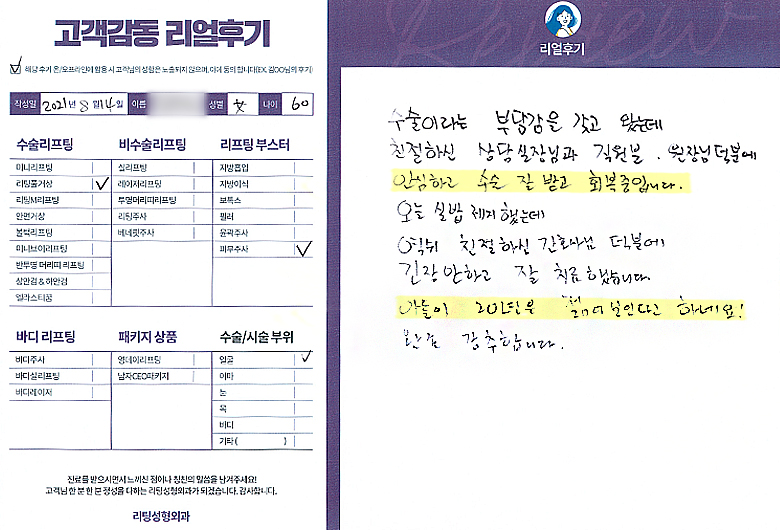 고객감동 리얼후기
해당 후기 온/오프라인에 활용 시 고객님의 성함은 노출되지 않으며, 이에 동의합니다(EX. 김OO님의 후기)
작성일 2021년 8월 14일 이름 성별 女 나이 60
수술리프팅
미니리프팅
리팅풀거상
리팅M리프팅
안면거상
볼턱리프팅
미니브이리프팅
반투명 머리띠 리프팅
상안검 & 하안검
엘라스티꿈
비수술리프팅
실리프팅
레이저리프팅
투명머리띠리프팅
리팅주사
베네핏주사
리프팅 부스터
지방흡입
지방이식
보톡스
필러
윤곽주사
피부주사
바디 리프팅
바디주사
바디실리프팅
바디레이저
패키지 상품
영데이리프팅
남자CEO패키지
수술/시술 부위
얼굴
이마
눈
목
바디
기타( )
진료를 받으시면서 느끼신 점이나 칭찬의 말씀을 남겨주세요!
고객님 한 분 한 분 정성을 다하는 리팅성형외과가 되겠습니다. 감사합니다.
리팅성형외과
Review
리얼후기
수술이라는 부담감을 갖고 왔는데
친절하신 상담실장님과 직원분, 원장님덕분에
안심하고 수술 잘 받고 회복중입니다.
오늘 실밥 제거했는데
역쉬 친절하신 간호사님 덕분에
긴장안하고 잘 치료했습니다.
아들이 20년은 젊어 보인다고 하네요!
완전 강추합니다.